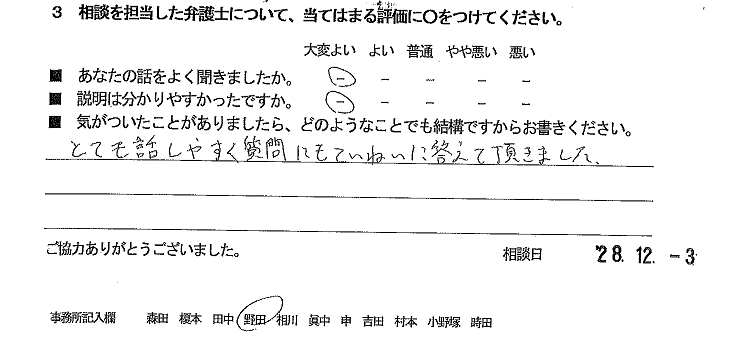 3 相談を担当した弁護士について、当てはまる評価に○をつけてください。
大変よい よい 普通 やや悪い 悪い
■ あなたの話をよく聞きましたか。 － － － － －
■ 説明は分かりやすかったですか。 － － － － －
■ 気がついたことがありましたら、どのようなことでも結構ですからお書きください。
とても話しやすく質問にもていねいに答えて頂きました。
ご協力ありがとうございました。
相談日 '28.12.-3
事務所記入欄 森田 榎本 田中 野田 相川 眞中 申 吉田 村本 小野塚 時田